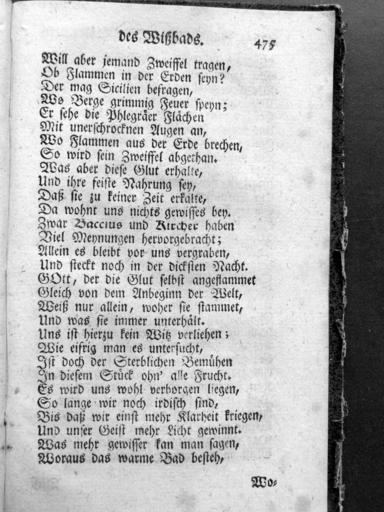 des Wißbads. 475
Will aber jemand Zweiffel tragen,
Ob Flammen in der Erden seyn?
Der mag Sicilien befragen,
Wo Berge grimmig Feuer speyn;
Er sehe die Phlegräer Flächen
Mit unerschrocknen Augen an,
Wo Flammen aus der Erde brechen,
So wird sein Zweiffel abgethan.
Was aber diese Glut erhalte,
Und ihre feiste Nahrung sey,
Daß sie zu keiner Zeit erkalte,
Da wohnt uns nichts gewisses bey.
Zwar Baccius und Kircher haben
Viel Meynungen hervorgebracht;
Allein es bleibt vor uns vergraben,
Und steckt noch in der dicksten Nacht.
GOtt, der die Glut selbst angeflammet
Gleich von dem Anbeginn der Welt,
Weiß nur allein, woher sie stammet,
Und was sie immer unterhält.
Uns ist hierzu kein Witz verliehen;
Wie eifrig man es untersucht,
Ist doch der Sterblichen Bemühen
In diesem Stück ohn' alle Frucht.
Es wird uns wohl verborgen liegen,
So lange wir noch irdisch sind,
Bis daß wir einst mehr Klarheit kriegen,
Und unser Geist mehr Licht gewinnt.
Was mehr gewisser kan man sagen,
Woraus das warme Bad besteh,
Wo=